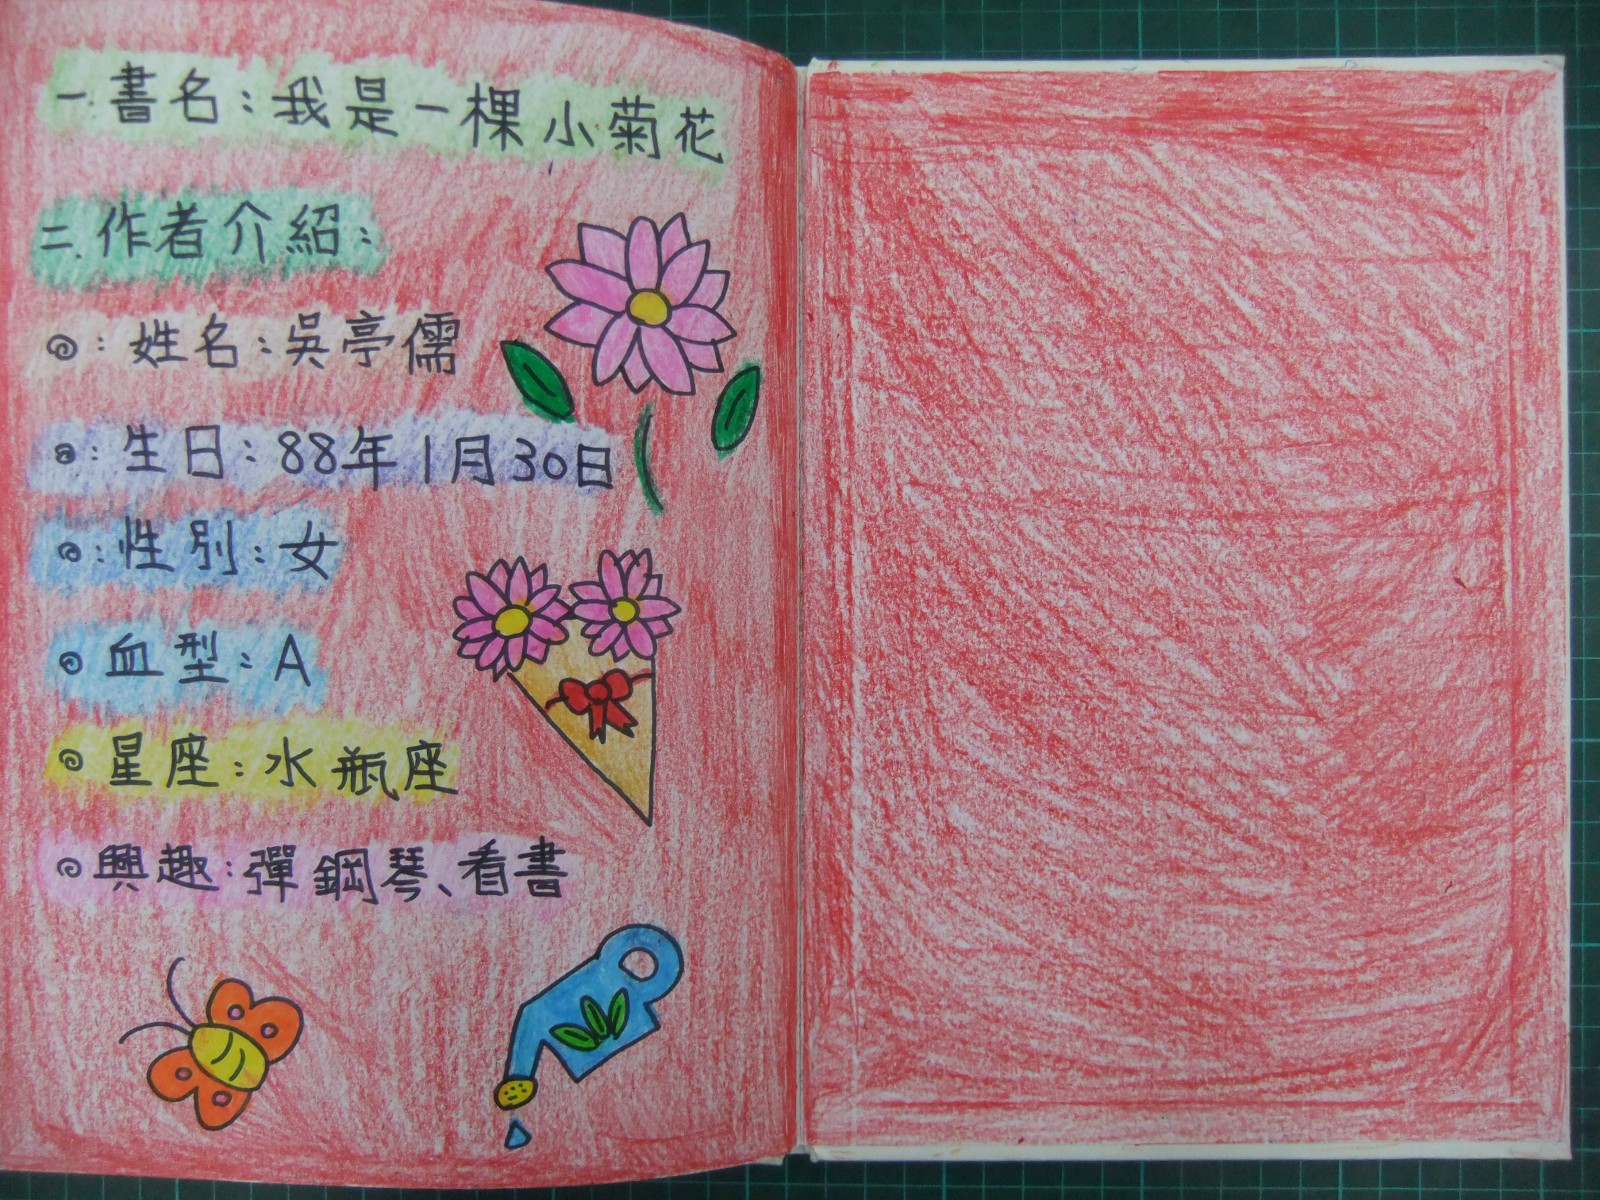 一.書名:我是一棵小菊花
二.作者介紹:
:姓名:吳亭儒
:生日:88年1月30日
:性別:女
血型:A
星座:水瓶座
興趣:彈鋼琴、看書